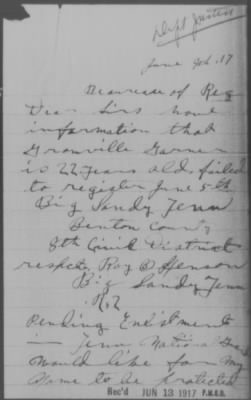 Dept Justice
June 9th. 17
Dear Sirs have
information that
Granville Garner
is 22 years old, failed
to register June 5th
Big Sandy Tenn
Benton County
8th Civil District
respect, Roy B Henson
Big Sandy Tenn
R.2
Pending Enlistment
in Tenn National Guard
Would like for my
Name to be protected
Rec'd JUN 13 1917 P.M.G.O.